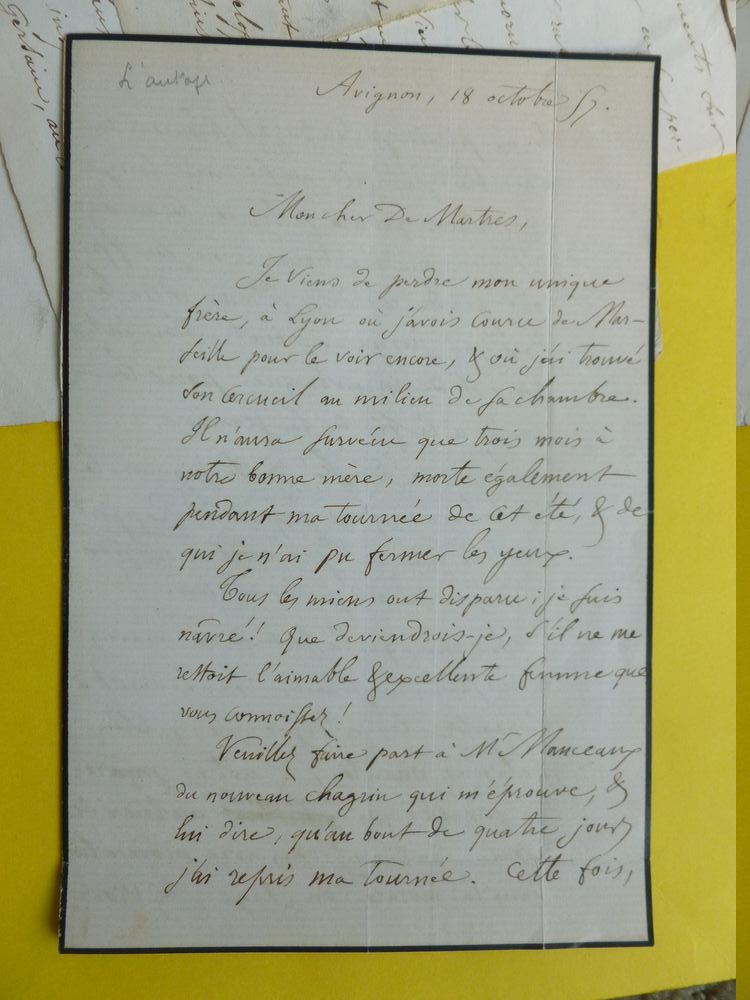 Avignon, 18 octobre 57.
Mon cher De Martres,
Je viens de perdre mon unique
frère, à Lyon où j'avois couru de Mar-
seille pour le voir encore, & où j'ai trouvé
son cercueil au milieu de sa chambre.
Il n'aura survécu que trois mois à
notre bonne mère, morte également
pendant ma tournée de cet été, & de
qui je n'ai pu fermer les yeux.
Tous les miens ont disparu ; je suis
navré! Que deviendrois-je, s'il ne me
restoit l'aimable & excellente femme que
vous connoissez!
Veuillez faire part à Mr Manceaux
du nouveau chagrin qui m'éprouve, &
lui dire, qu'au bout de quatre jours
j'ai repris ma tournée. Cette fois,